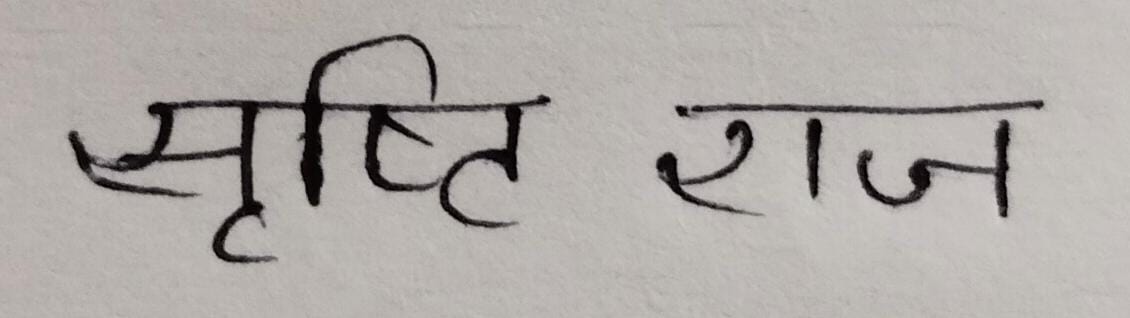 सृष्टि राज